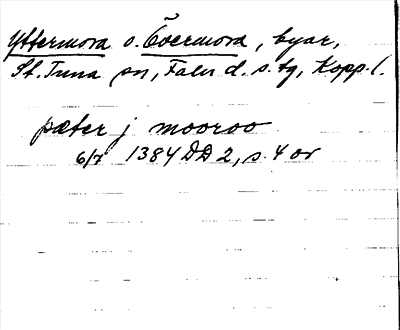 Yttermora o. Övermora, byar,
St. Tuna sn, Falu d. s. tg, Kopp. l.
pæter j mooroo
6/7 1384 DD 2, s. 4 or